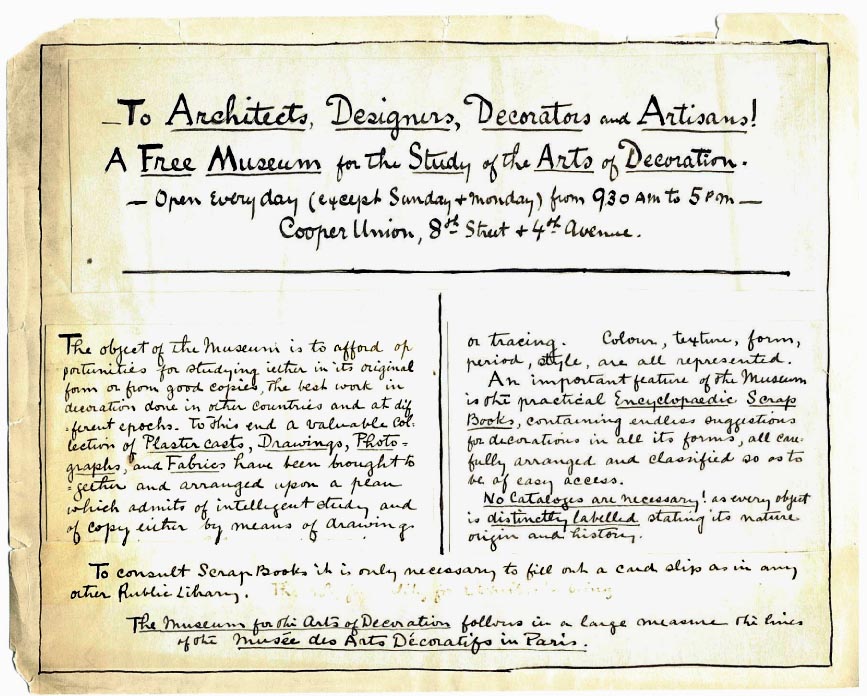 To Architects, Designers, Decorators and Artisans!
A Free Museum for the Study of the Arts of Decoration.
— Open Every day (except Sunday + Monday) from 930 AM to 5 PM —
Cooper Union, 8th Street + 4th Avenue.
The object of the Museum is to afford op
portunities for studying either in its original
form or from good copies, the best work in
decoration done in other countries and at dif
-ferent epochs. To this end a valuable Col-
lection of Plaster casts, Drawings, Photo-
graphs, and Fabrics have been brought to
-gether and arranged upon a plan
which admits of intelligent study and
of copy either by means of drawings
or tracing. Colour, texture, form,
period, style, are all represented.
An important feature of the Museum
is the practical Encyclopaedic Scrap
Books, containing endless suggestions
for decorations in all its forms, all care-
fully arranged and classified so as to
be of easy access.
No Cataloges are necessary! as every object
is distinctly labelled stating its nature
origin and history.
To consult Scrap Books it is only necessary to fill out a card slip as in any
other Public Library.
The Museum for the Arts of Decoration follows in a large measure the lines
of the Musée des Arts Décoratifs in Paris.